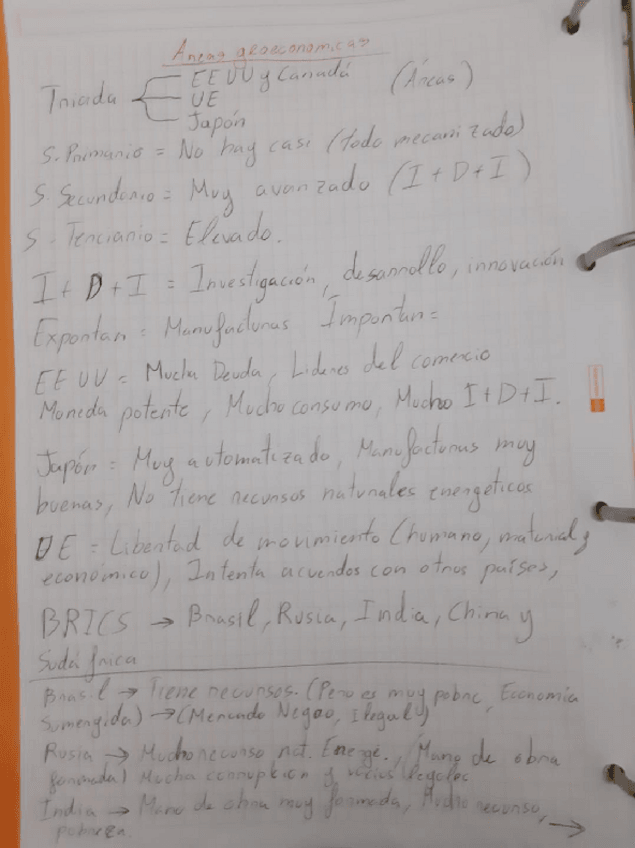 Áreas geoeconomicas
Triada
EEUU y Canadá (Áreas)
UE
Japón
S. Primario = No hay casi (todo mecanizado)
S. Secundario = Muy avanzado (I+D+I)
S. Terciario = Elevado.
I + D + I = Investigación, desarrollo, innovación
Exportan = Manufacturas Importan =
EEUU = Mucha Deuda, Lideres del comercio
Moneda potente, Mucho consumo, Mucho I+D+I.
Japón = Muy automatizado, Manufacturas muy
buenas, No tiene recursos naturales energéticos
UE = Libertad de movimiento (humano, material y
económico), Intenta acuerdos con otros países,
BRICS → Brasil, Rusia, India, China y
Sudáfrica
Brasil → Tiene recursos. (Pero es muy pobre, Economía
Sumergida) → (Mercado Negro, Ilegal)
Rusia → Mucho recurso nat. Energé., (Mano de obra
formada) Mucha corrupcion y
India → Mano de obra muy formada, recurso,
pobreza. →